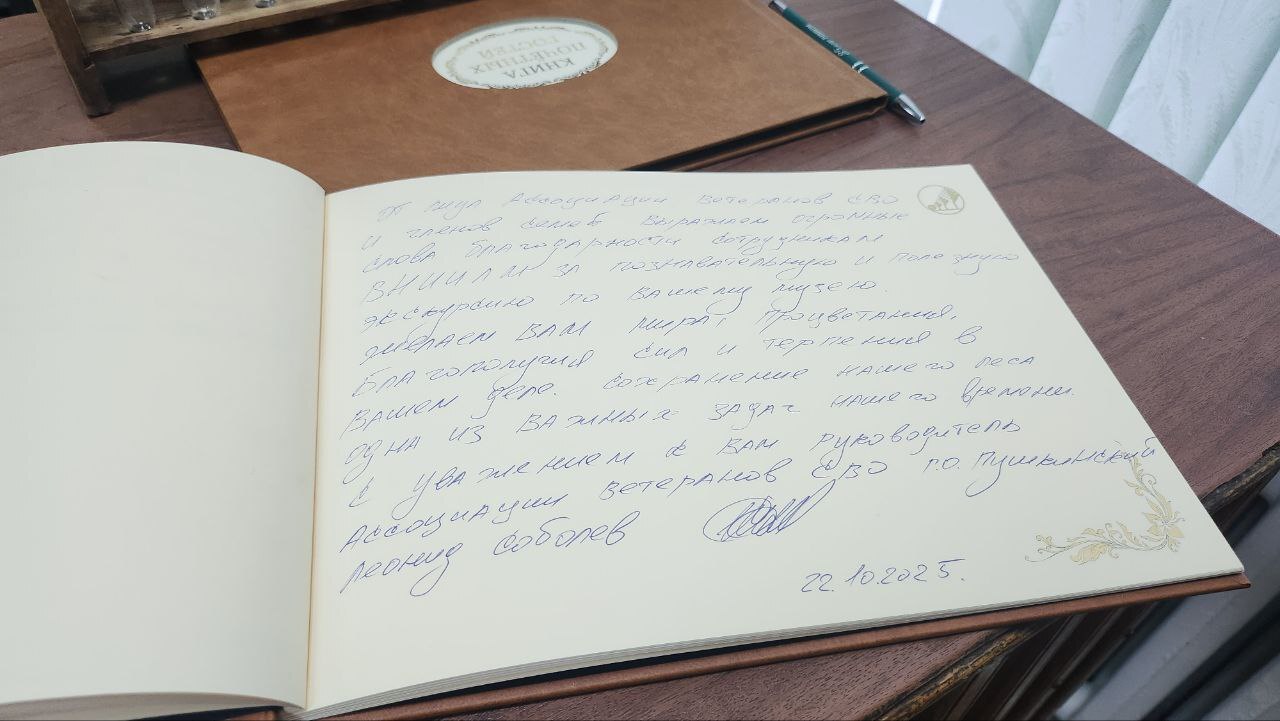 КНИГА
ПОЧЕТНЫХ
ГОСТЕЙ
От лица Ассоциации ветеранов СВО
и членов семей выражаем огромные
слова благодарности сотрудникам
ВНИИЛМ за познавательную и полезную
экскурсию по вашему музею.
Желаем вам мира, процветания,
благополучия сил и терпения в
вашем деле. Сохранение нашего леса
одна из важных задач нашего времени.
С уважением к вам руководитель
Ассоциации ветеранов СВО г.о. Пушкинский
Леонид Соболев
22.10.2025.